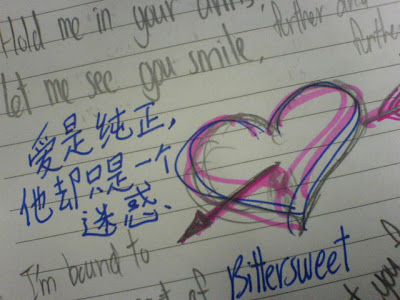 Hold me in your arms, further and
let me see you smile, further
爱是纯正，
他却只是一个
迷惑、
I'm bound to
of Bittersweet